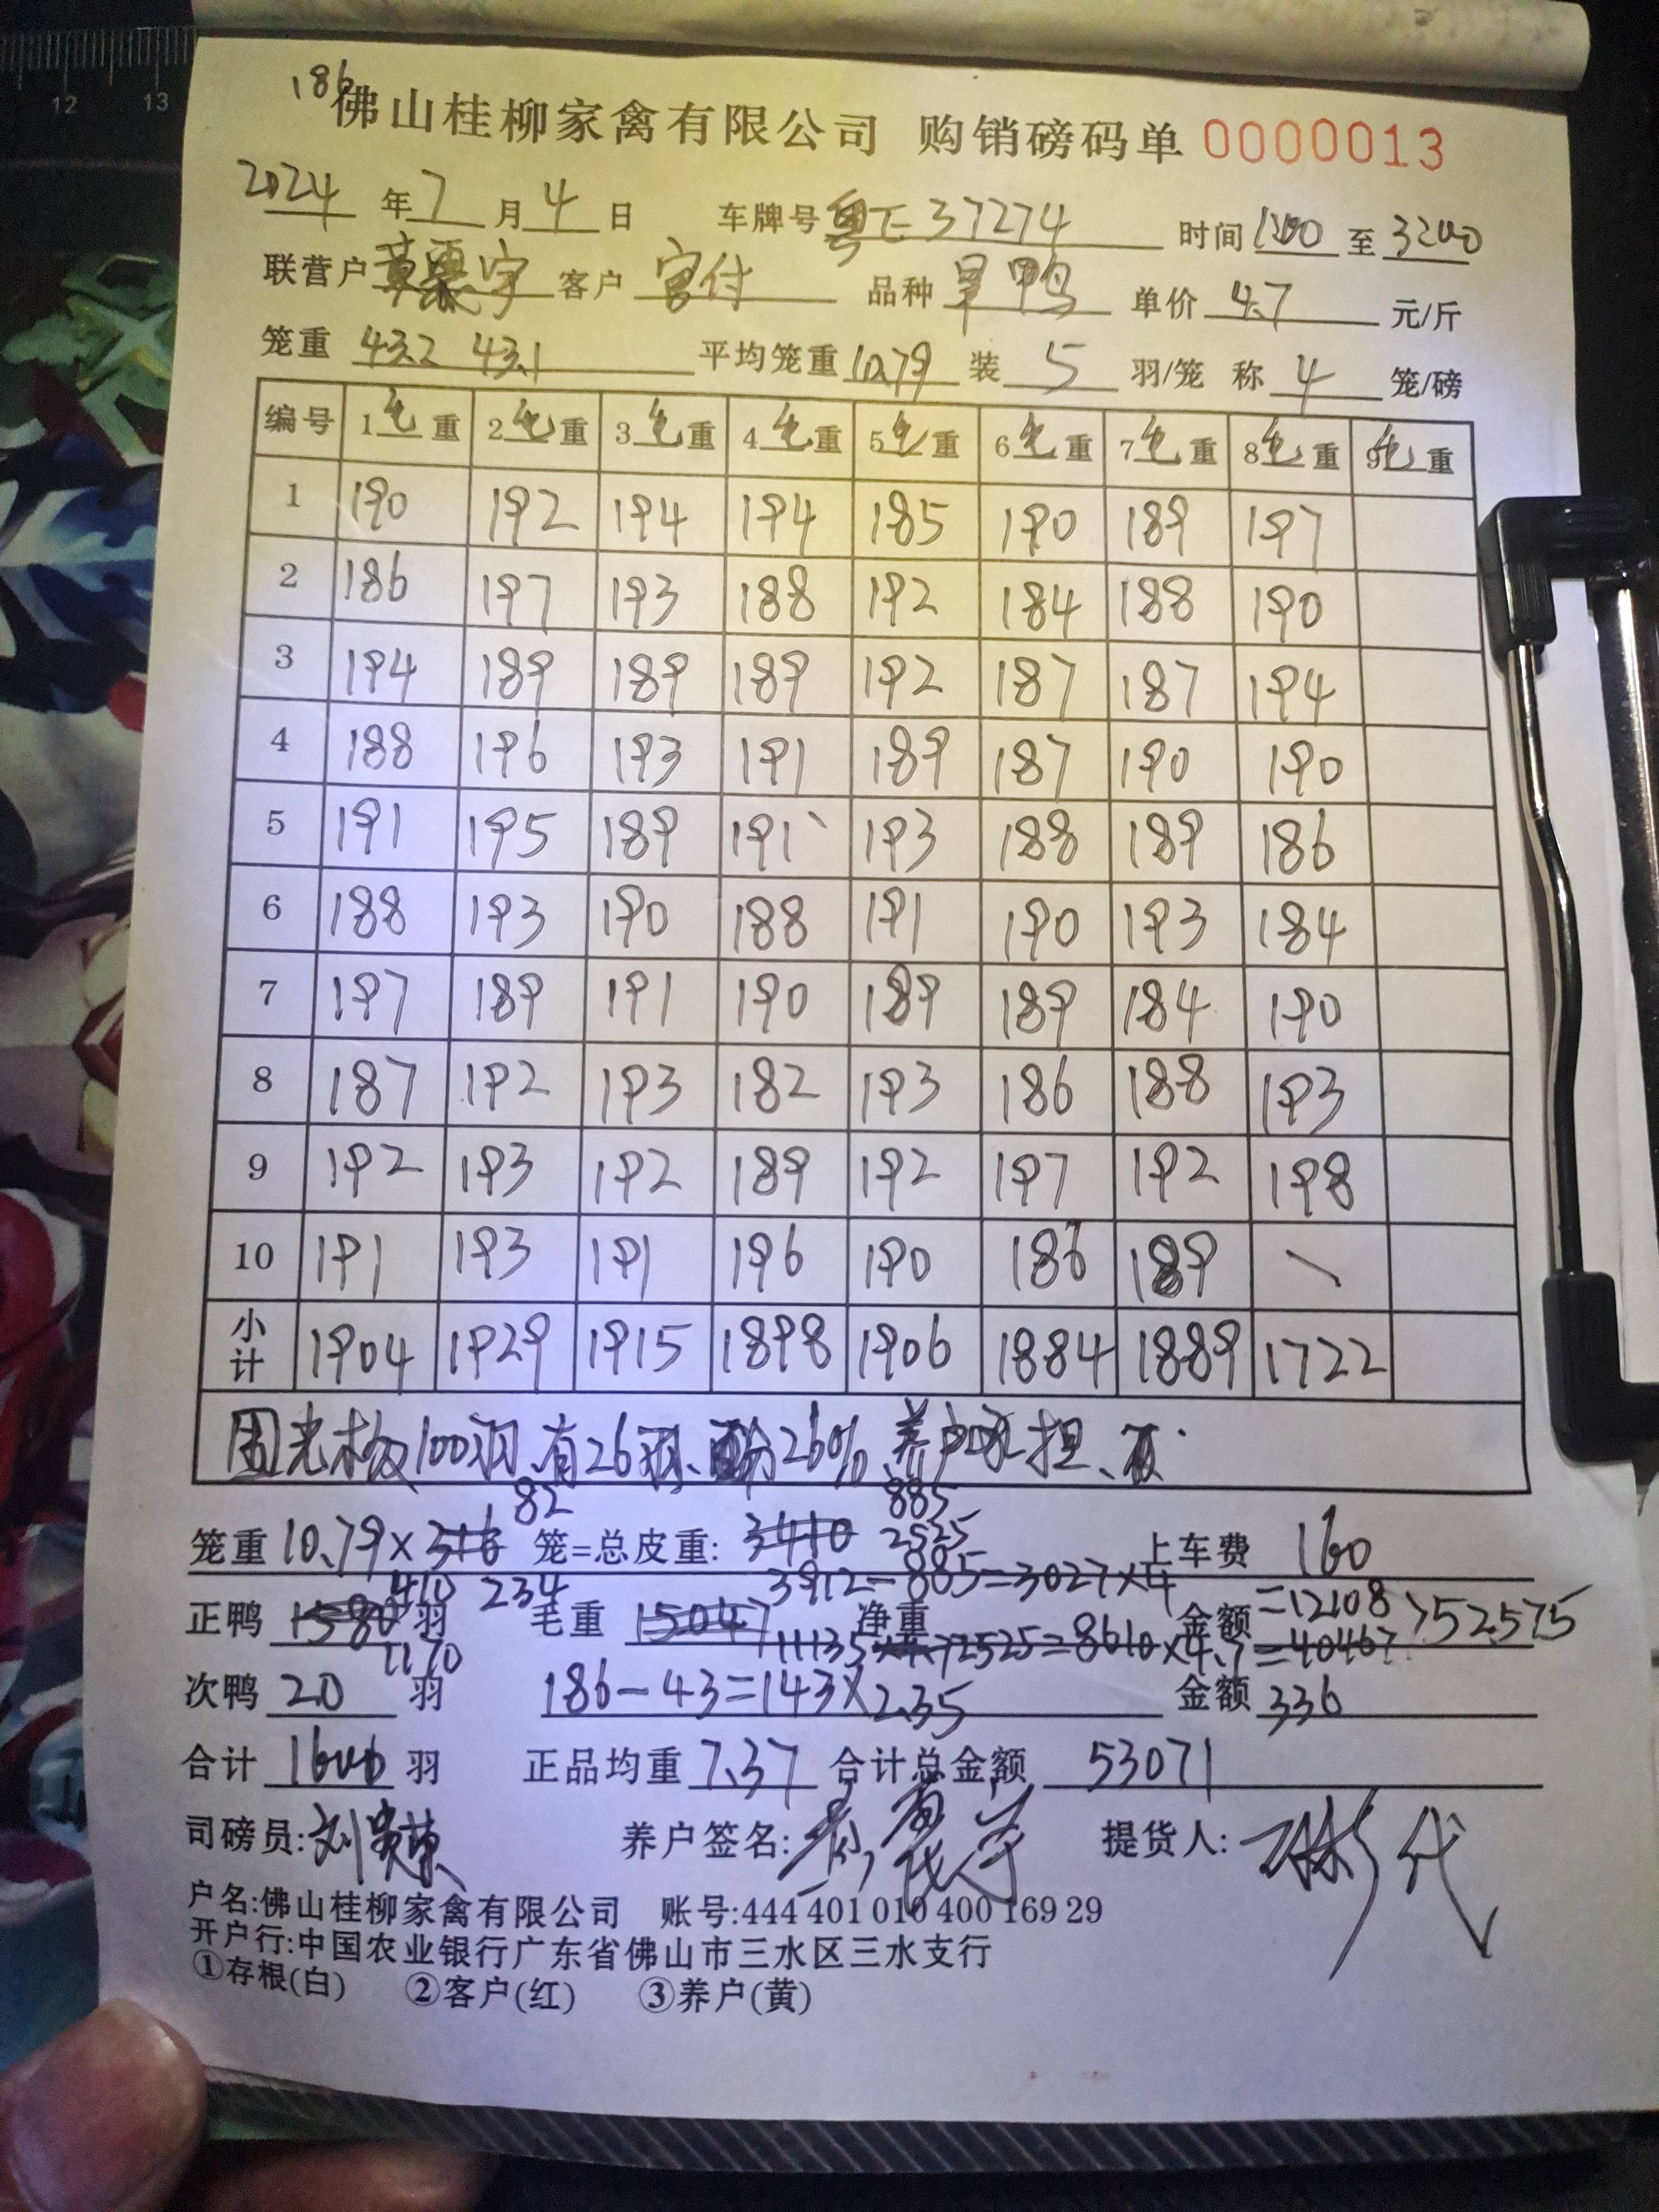 12 13
186
佛山桂柳家禽有限公司 购销磅码单 0000013
2024 年 7 月 4 日 车牌号 粤E37274 时间 1200 至 3200
联营户 客户 宫付 品种 旱鸭 单价 4.7 元/斤
笼重 43.2 43.1 平均笼重 10.79 装 5 羽/笼 称 4 笼/磅
编号 1毛重 2毛重 3毛重 4毛重 5毛重 6毛重 7毛重 8毛重 9毛重
1 190 192 194 194 185 190 189 197
2 186 197 193 188 192 184 188 190
3 194 189 189 189 192 187 187 194
4 188 196 193 191 189 187 190 190
5 191 195 189 191 193 188 189 186
6 188 193 190 188 191 190 193 184
7 197 189 191 190 189 189 184 190
8 187 192 193 182 193 186 188 193
9 192 193 192 189 192 197 192 198
10 191 193 191 196 190 186 189 \
小计 1904 1929 1915 1898 1906 1884 1889 1722
100羽、有26羽、26%、养户承担、
82 885
笼重 10.79×316 笼=总皮重: 3410 2525 上车费 160
410 234 3912-885=3027×4=12108
正鸭 1580 羽 毛重 15047 净重 金额 >52575
1170 11135 2525=8610×4.7=40467
次鸭 20 羽 186-43=143×2.35 金额 336
合计 1600 羽 正品均重 7.37 合计总金额 53071
司磅员: 养户签名: 提货人:
户名:佛山桂柳家禽有限公司 账号:444 401 010 400 169 29
开户行:中国农业银行广东省佛山市三水区三水支行
①存根(白) ②客户(红) ③养户(黄)